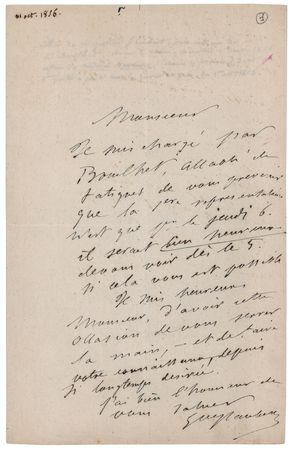 oct. 1856.
Monsieur
Je suis chargé par
Bouilhet, accablé de
fatigues de vous prévenir
que la 1ère représentation
n'est que pour le jeudi 6.
il serait bien heureux
de vous voir dès le 5.
si cela vous est possible
Je suis heureux,
Monsieur, d'avoir cette
occasion de vous serrer
la main, – et de faire
votre connaissance, depuis
si longtemps désirée.
j'ai bien l'honneur de
vous saluer
Gve Flaubert